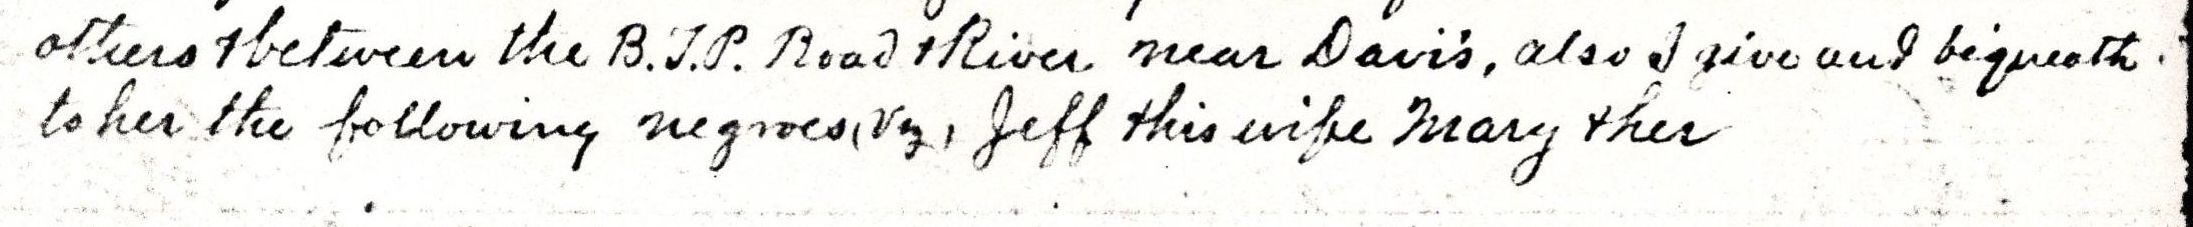 others & between the B.T.P. Road & River near Davis, also I give and bequeath.
to her the following negroes, Viz, Jeff & his wife Mary & her